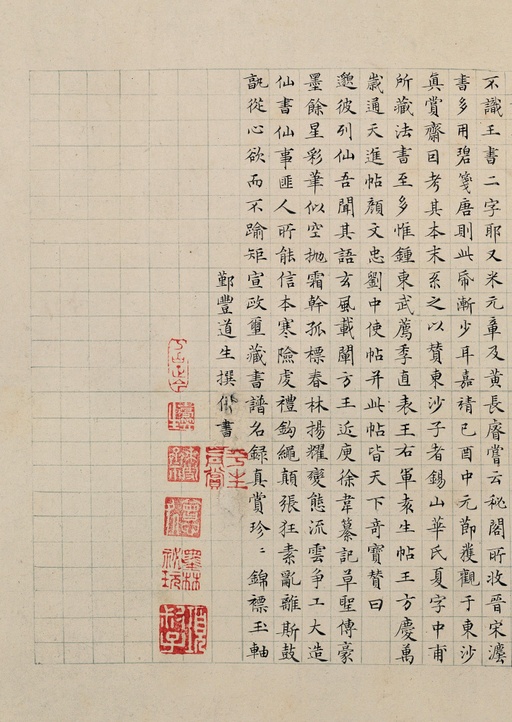 不識王書二字耶又米元章及黃長睿嘗云秘閣所收晉宋灋
書多用碧箋唐則此帋漸少耳嘉靖己酉中元節獲觀于東沙
真賞齋因考其本末系之以贊東沙子者錫山華氏夏字中甫
所藏法書至多惟鍾東武薦季直表王右軍袁生帖王方慶萬
歲通天進帖顏文忠劉中使帖并此帖皆天下奇寶贊曰
邈彼列仙吾聞其語玄風載闡方王近庾徐韋纂記草聖傳豪
墨餘星彩華似空拋霜幹孤標春林揚耀變態流雲爭工大造
仙書仙事匪人所能信本寒險虔禮鈎繩顛張狂素亂離斯鼓
孰從心欲而不踰矩宣政璽藏書譜名錄真賞珍〻錦褾玉軸
鄞豐道生撰併書
墨林秘玩